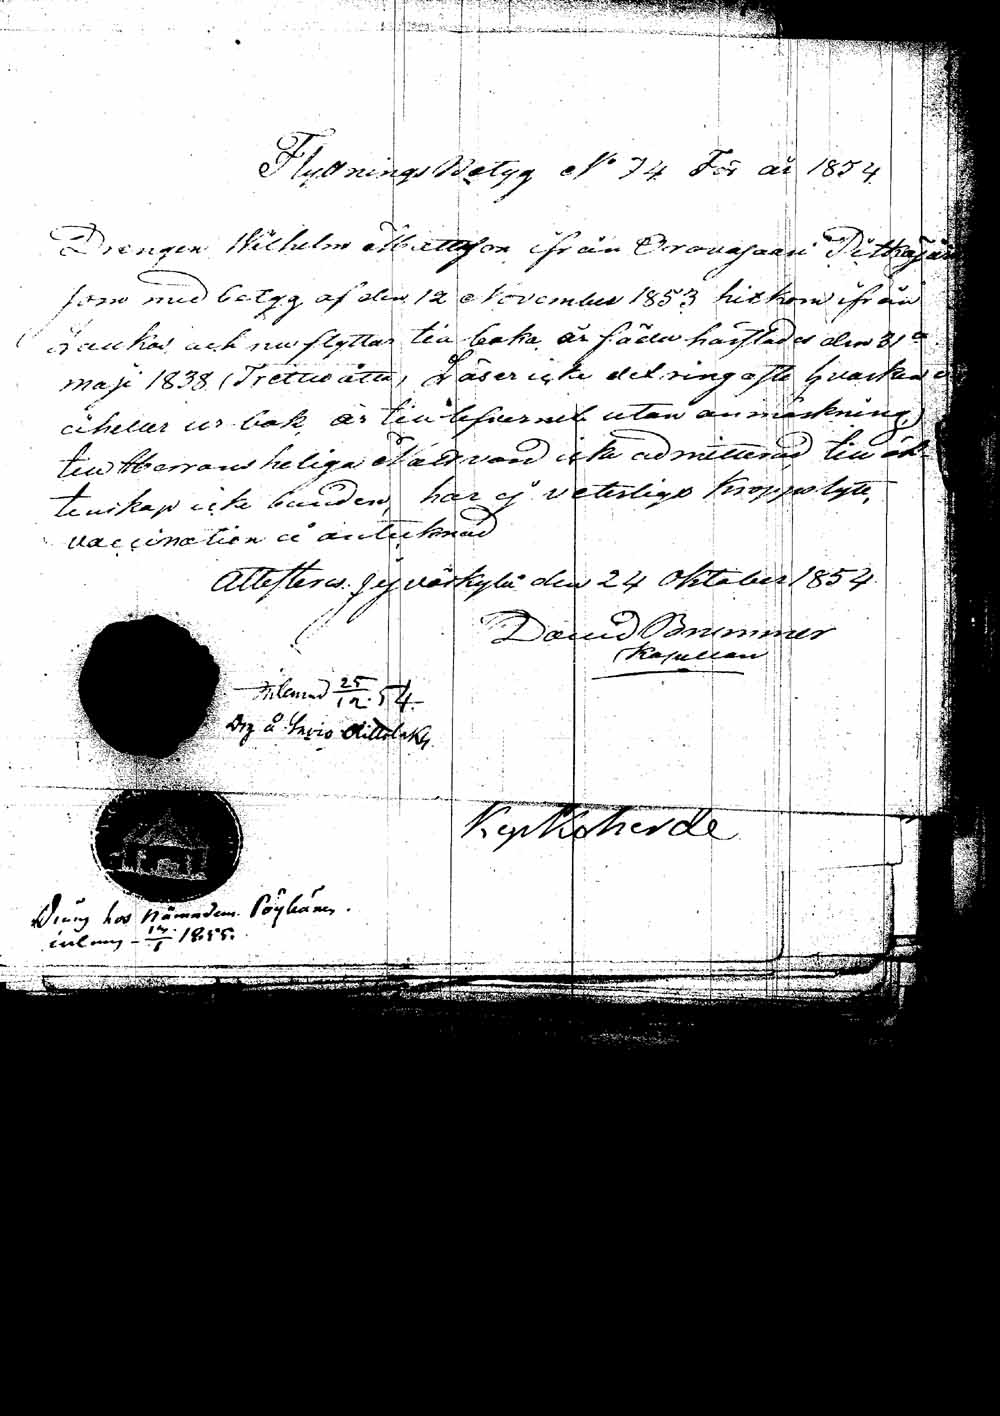 Flyttnings Betyg No 74 För år 1854
Drengen Wilhelm Mattsson ifrån Oravasaari Pitkäjär
som med betyg af den 12 November 1853 hitkom ifrån
Laukas och nu flyttar till baka är född härstädes den 31
maji 1838 (Trettio åtta) Läser icke det ringaste hvarken
eller ur bok är till lefvernet utan anmärkning,
till Herrans heliga Nattvard icke admitterad till äk-
tenskap icke bunden, har ej veterligt kroppslyte,
vaccination ej antecknad
Attesteras Jyväskylä den 24 Oktober 1854
David Brummer
Kapellan
Inlemnad 25/12 54.
Drg å
Dräng hos Nämndem. Pöyhönen.
inlemn - 1855.